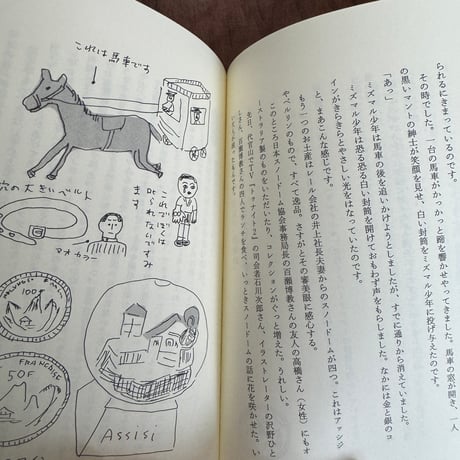 られるにきまっているのです。
その時でした。一台の馬車がかっかっと蹄を響かせやってきました。馬車の窓が開き、一人
の黒いマントの紳士が笑顔を見せ、白い封筒をミズマル少年に投げ与えたのです。
「あっ」
ミズマル少年は馬車の後を追いかけようとしましたが、すでに通りから消えていました。
ミズマル少年は恐る恐る白い封筒を開けておもわず声をもらしました。なかには金と銀のコ
インがきらきらとやさしい光をはなっていたのです。
と、まあこんな感じです。
もう一つのお土産はレール会社の井上社長夫妻からのスノードームが四つ。これはアッシジ
やベルリンのもので、すべて逸品。さすがとその審美眼に感心する。
このところ日本スノードーム協会事務局長の百瀬博教さんの友人の高橋さん（女性）にもオ
ーストラリア製のものをいただいたり、コレクションがぐっと増えた。うれしい。
先日、代官山でTV『トゥナイト2』の司会者石川次郎さん、イラストレーターの沢野ひと
しさん、百瀬博教さんの四人でランチを食べ、いっときスノードームの話に花を咲かせた。い
これは馬車です
穴の大きいベルト
マオカラー
これでぼくは
叱られないですみ
ます
100F
50F
ASSISI